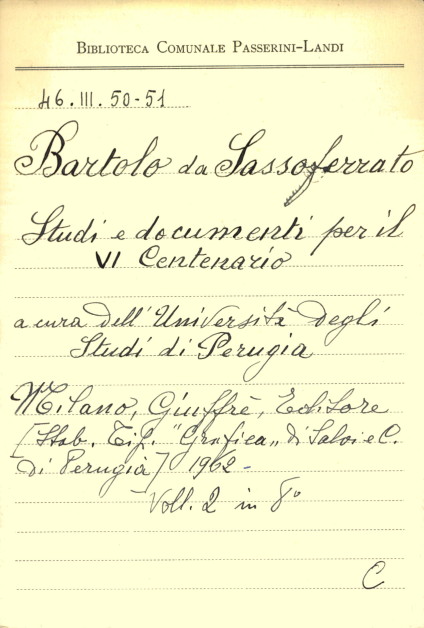 BIBLIOTECA COMUNALE PASSERINI-LANDI
46.III.50-51
Bartolo da Sassoferrato
Studi e documenti per il
VI Centenario
a cura dell'Università degli
Studi di Perugia
Milano, Giuffrè, Editore
[Stab. Tip. "Grafica" di Salvi e C.
di Perugia] 1962 -
Voll. 2 in 8°
C